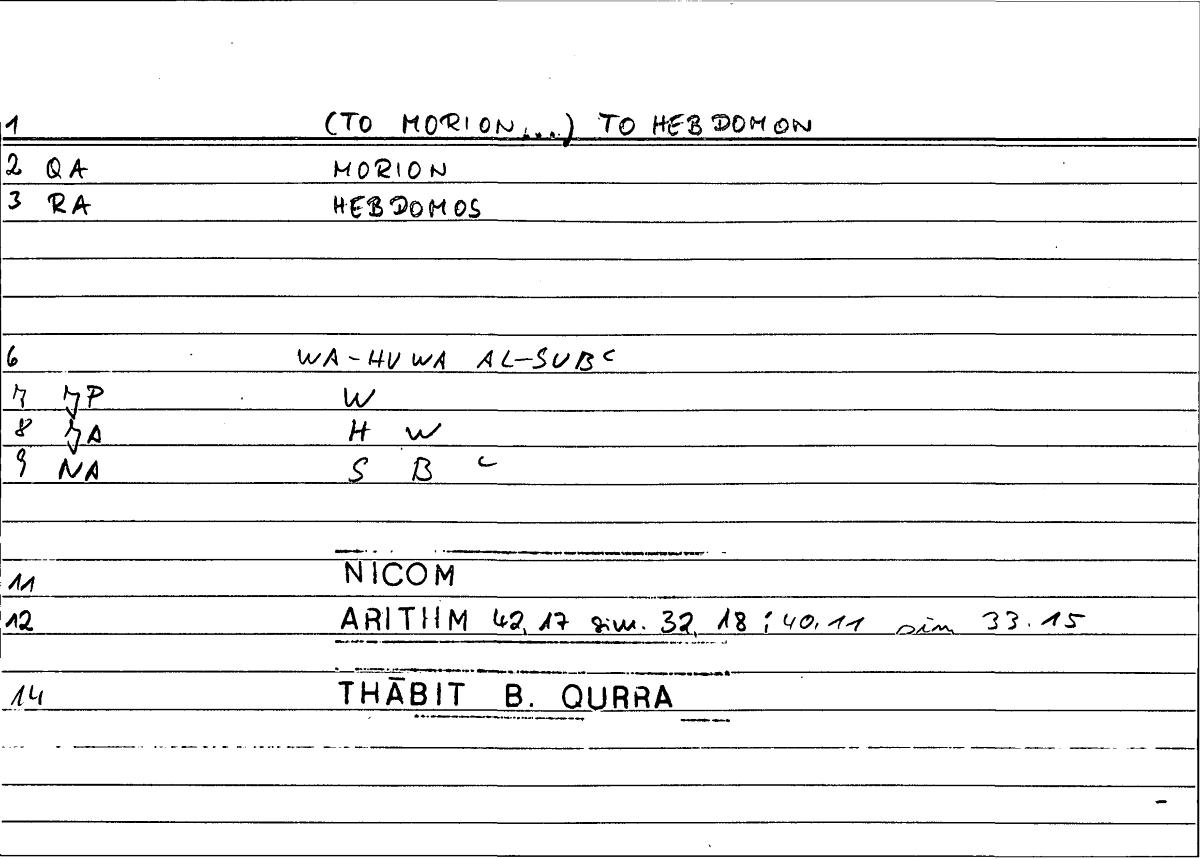 1 (TO MORION...) TO HEBDOMON
2 QA MORION
3 RA HEBDOMOS
6 WA-HUWA AL-SUBC
7 P W
8 A H W
9 NA S B C
11 NICOM
12 ARITHM 42, 17 sim. 32, 18 ; 40.11 sim 33.15
14 THĀBIT B. QURRA